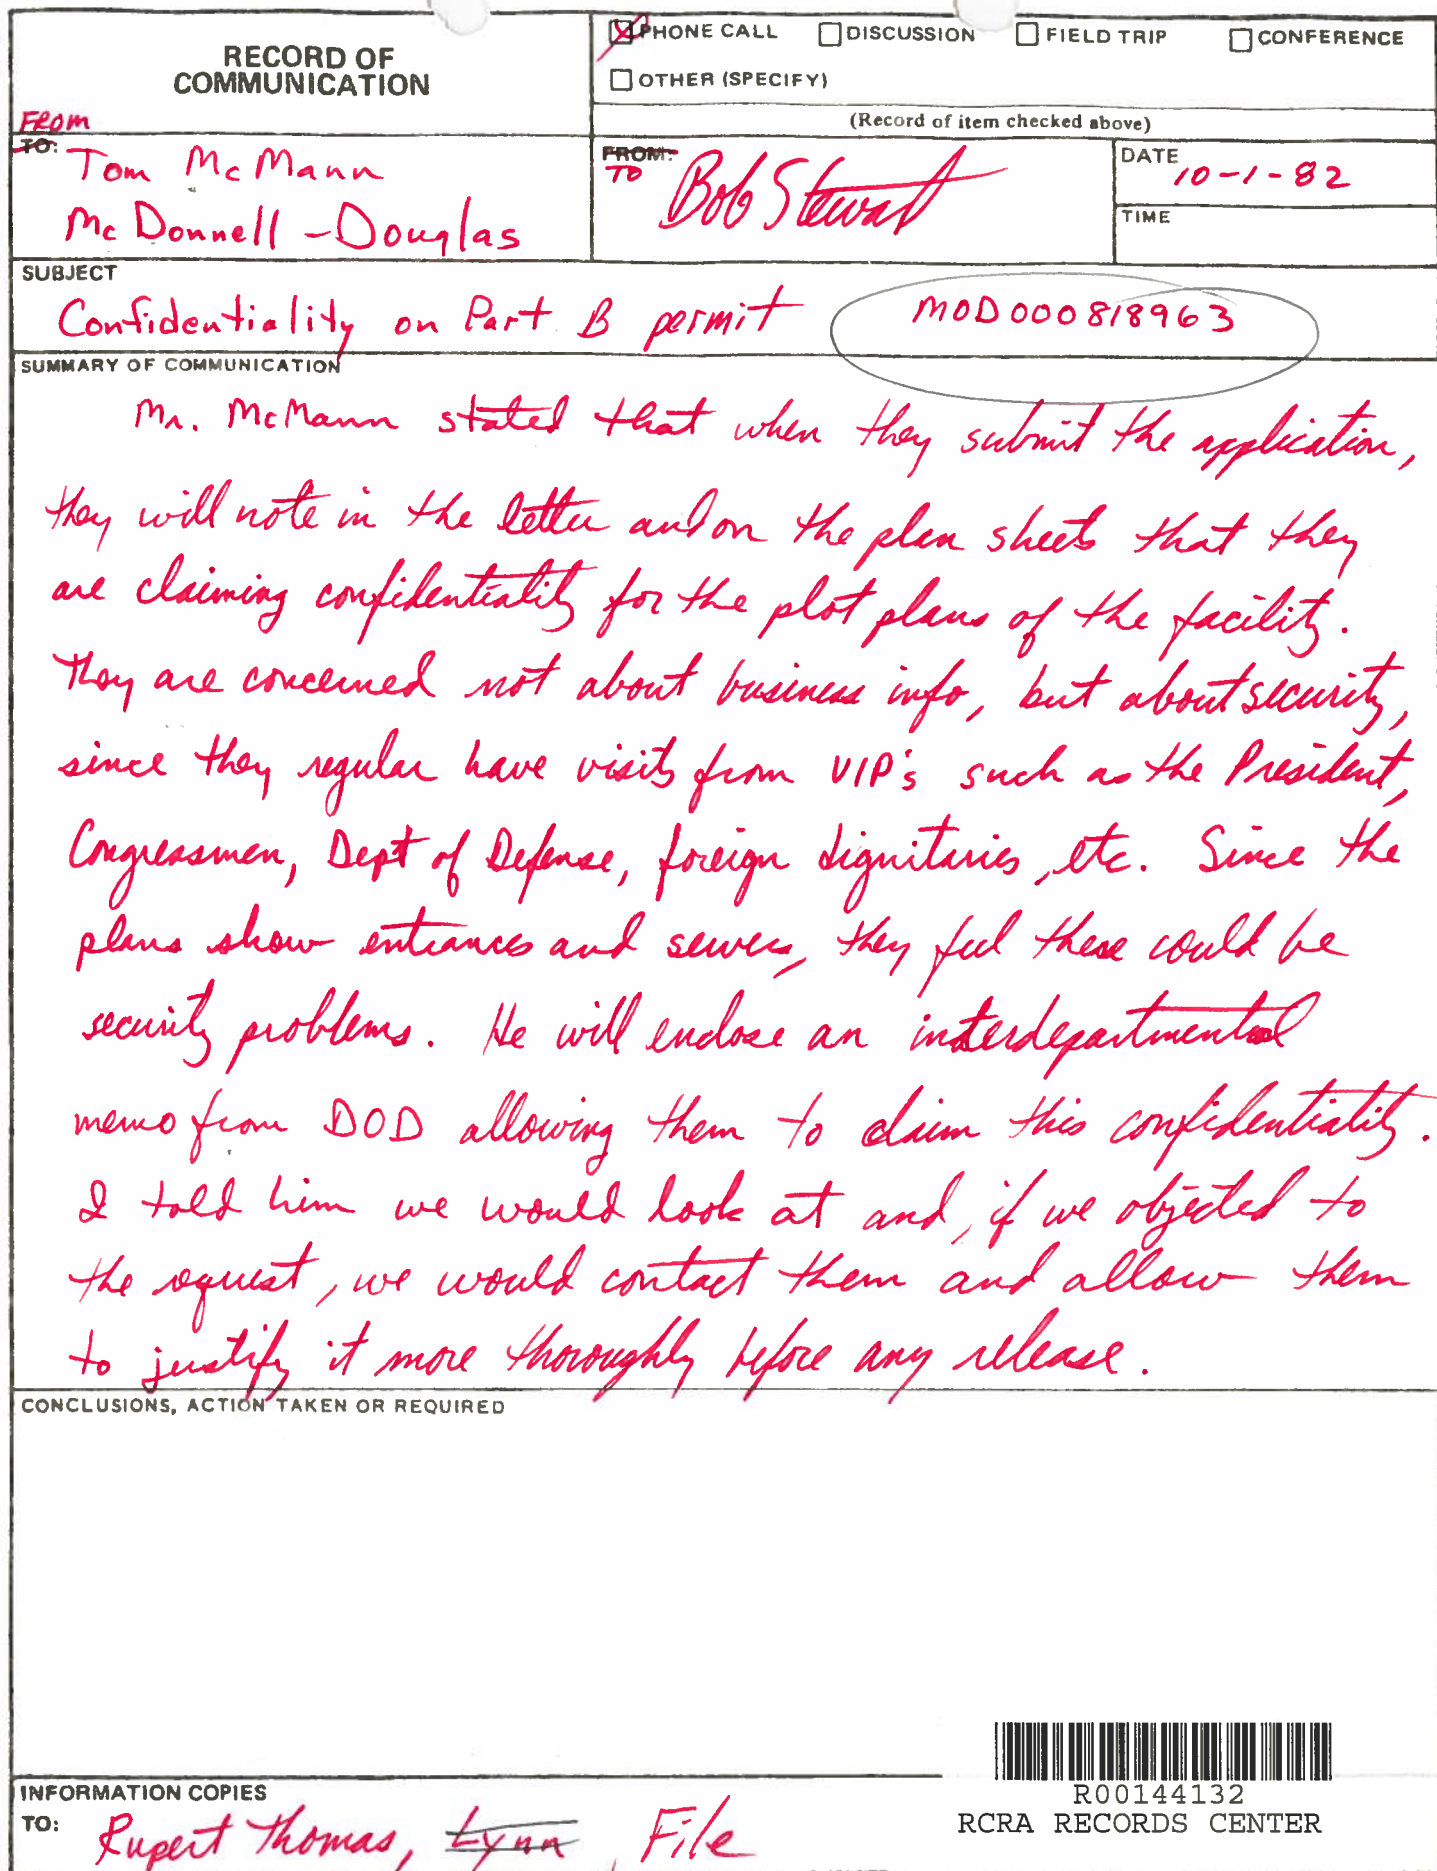 RECORD OF
COMMUNICATION
PHONE CALL DISCUSSION FIELD TRIP CONFERENCE
OTHER (SPECIFY)
(Record of item checked above)
FROM
TO:
Tom McMann
McDonnell-Douglas
FROM:
TO
Bob Stewart
DATE
10-1-82
TIME
SUBJECT
Confidentiality on Part B permit
MOD000818963
SUMMARY OF COMMUNICATION
Mr. McMann stated that when they submit the application,
they will note in the letter and on the plan sheets that they
are claiming confidentiality for the plot plans of the facility.
They are concerned not about business info, but about security,
since they regular have visits from VIP's such as the President,
Congressmen, Dept of Defense, foreign dignitaries, etc. Since the
plans show entrances and sewers, they feel these could be
security problems. He will enclose an interdepartmental
memo from DOD allowing them to claim this confidentiality.
I told him we would look at and, if we objected to
the request, we would contact them and allow them
to justify it more thoroughly before any release.
CONCLUSIONS, ACTION TAKEN OR REQUIRED
R00144132
RCRA RECORDS CENTER
INFORMATION COPIES
TO:
Rupert Thomas, Lynn, File